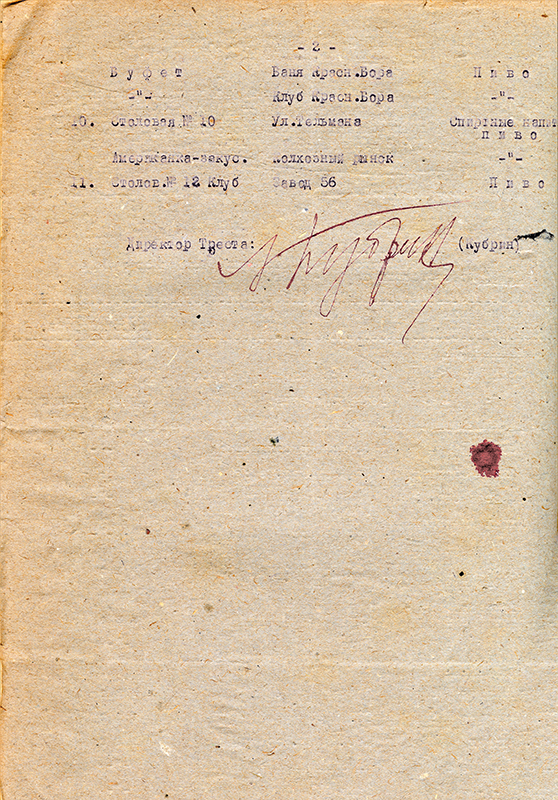 - 2 -
Буфет Баня Красн.Бора Пиво
-"- Клуб Красн.Бора -"-
10. Столовая № 10 Ул.Тельмана Спиртные напит
пиво
Американка-закус. Колхозный рынок -"-
11. Столов.№ 12 Клуб Завод 56 Пиво
Директор Треста: Кубрин (Кубрин)